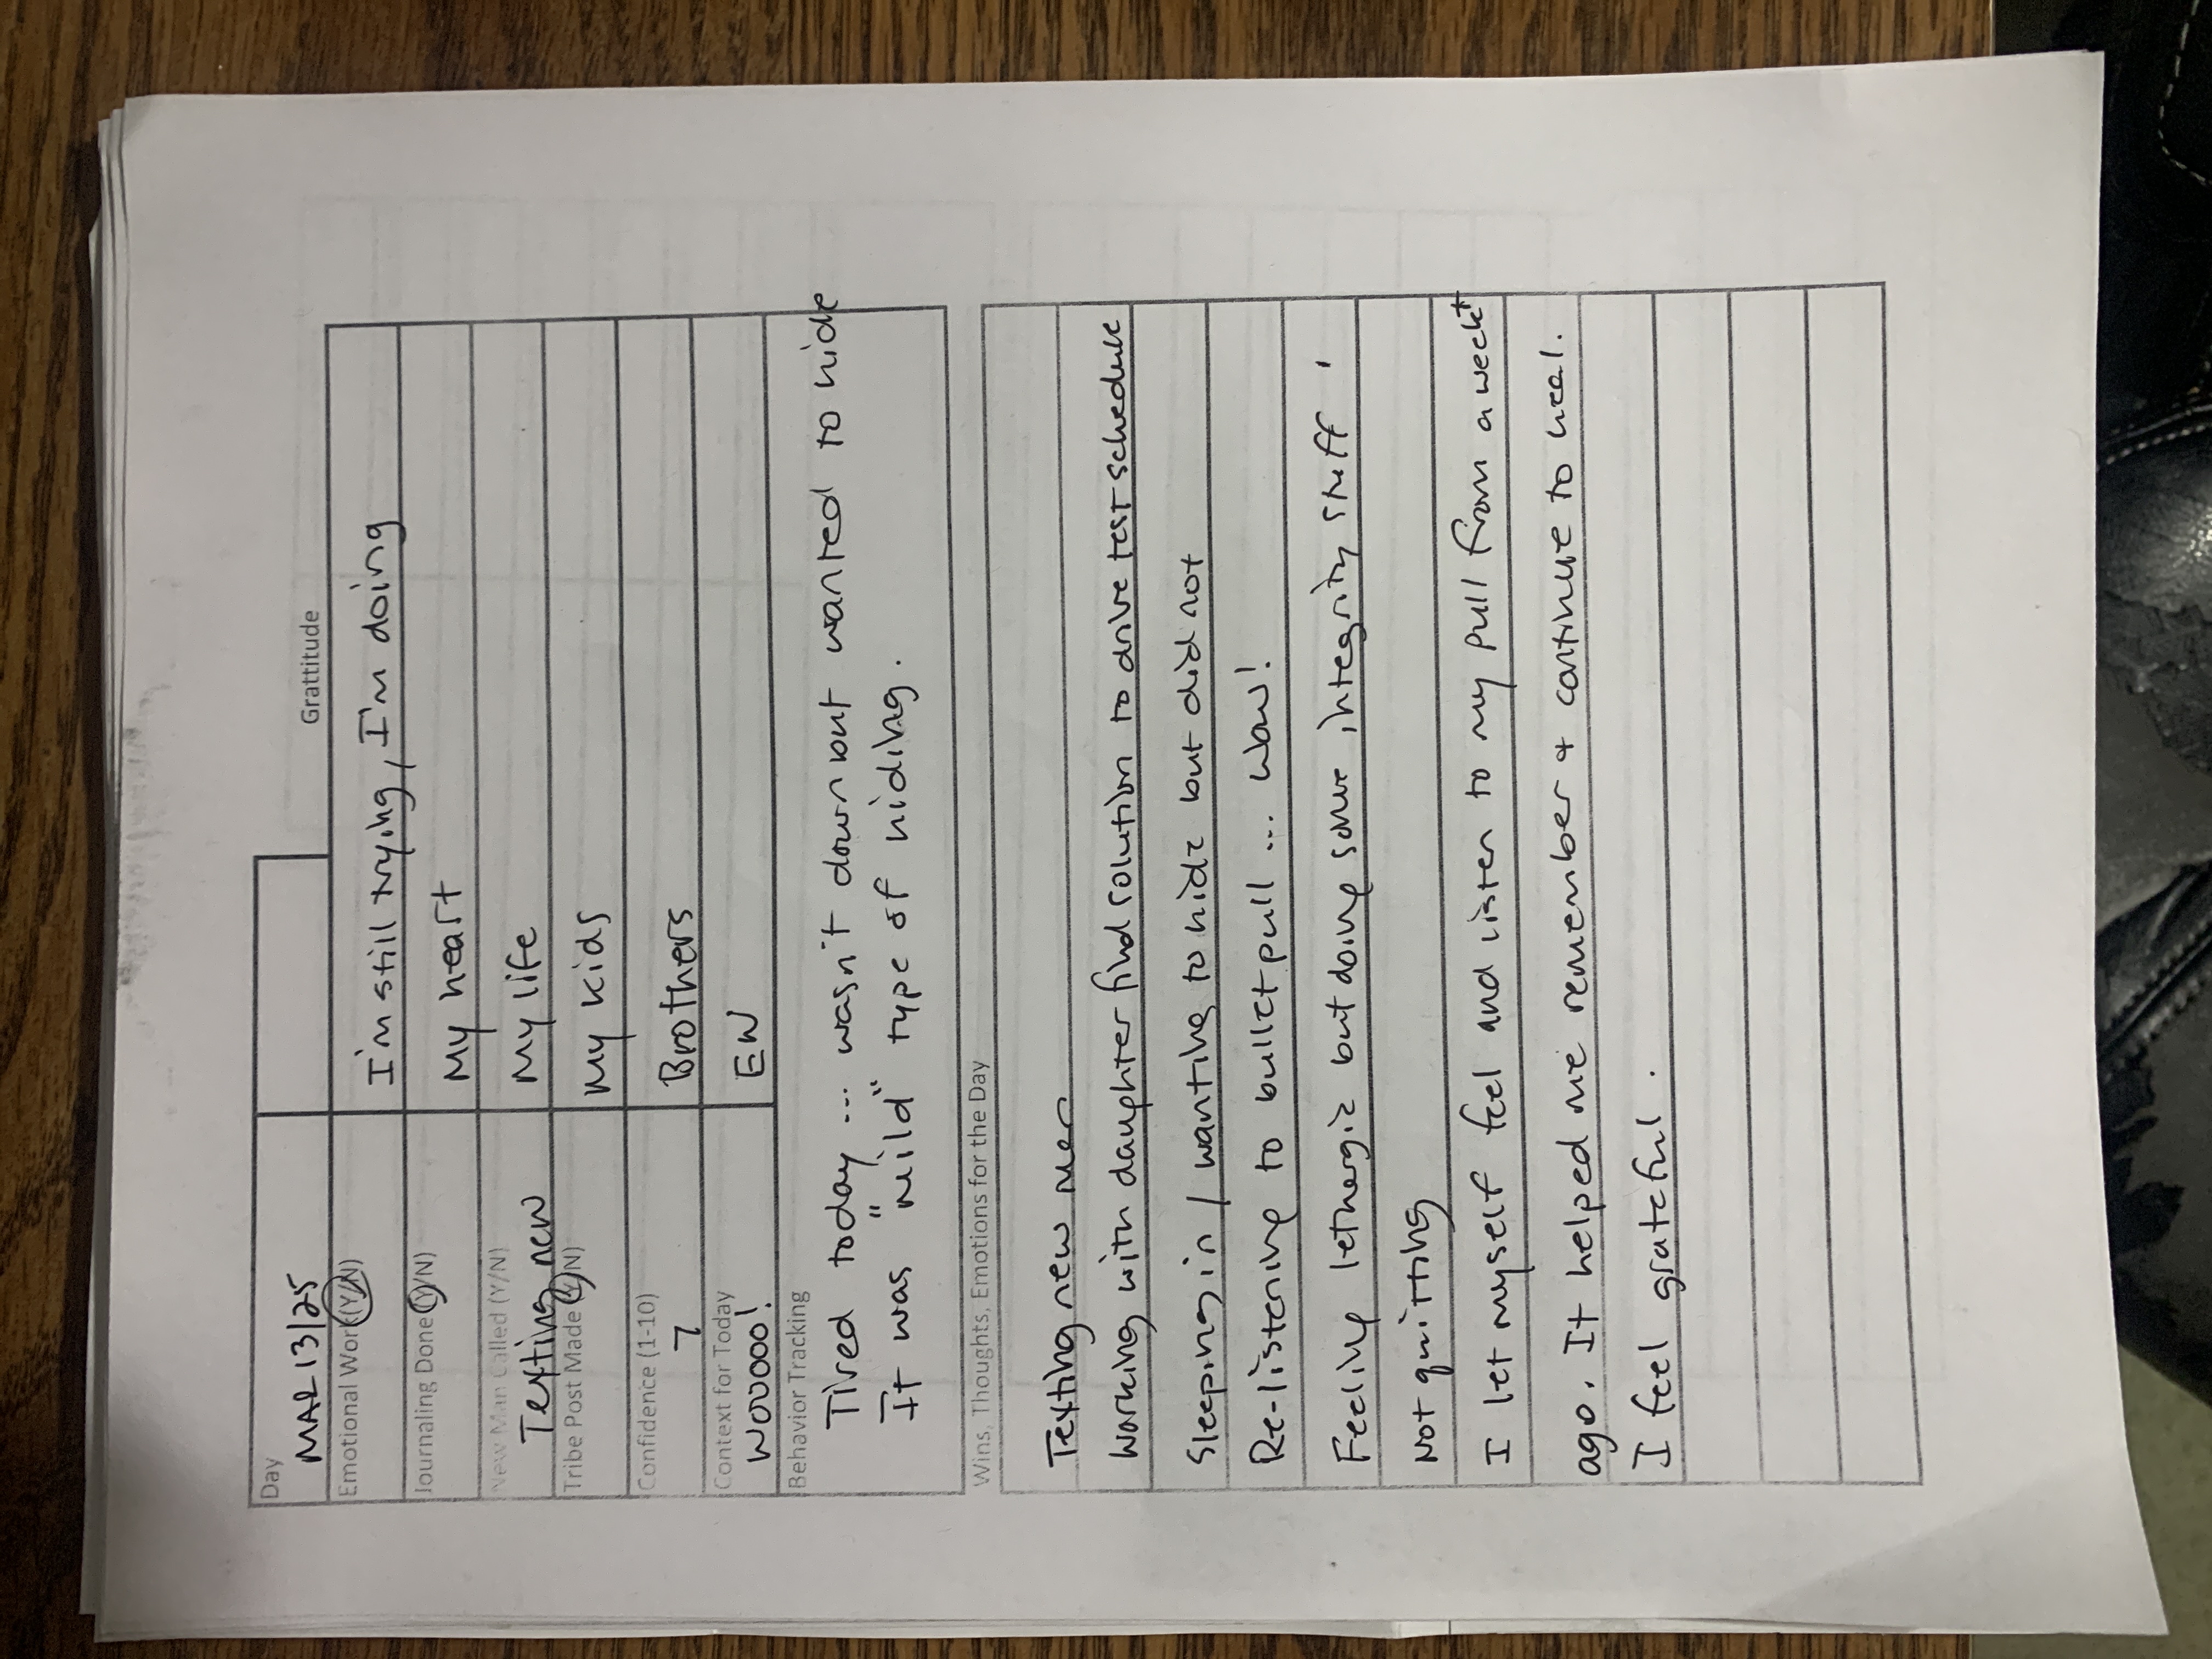 Day
MAR 13/25
Grattitude
Emotional Work (Y/N)
I'm still trying, I'm doing
Journaling Done (Y/N)
My heart
New Man Called (Y/N)
My life
Texting new
Tribe Post Made (Y/N)
My kids
Confidence (1-10)
7
Brothers
Context for Today
WOOOOO!
EW
Behavior Tracking
Tired today ... wasn't down but wanted to hide
It was "mild" type of hiding.
Wins, Thoughts, Emotions for the Day
Texting new men
Working with daughter find solution to drive test schedule
Sleeping in / wanting to hide but did not
Re-listening to bullet pull ... wow!
Feeling lethergic but doing some integrity stuff.
Not quitting
I let myself feel and listen to my pull from a week+
ago. It helped me remember + continue to heal.
I feel grateful.